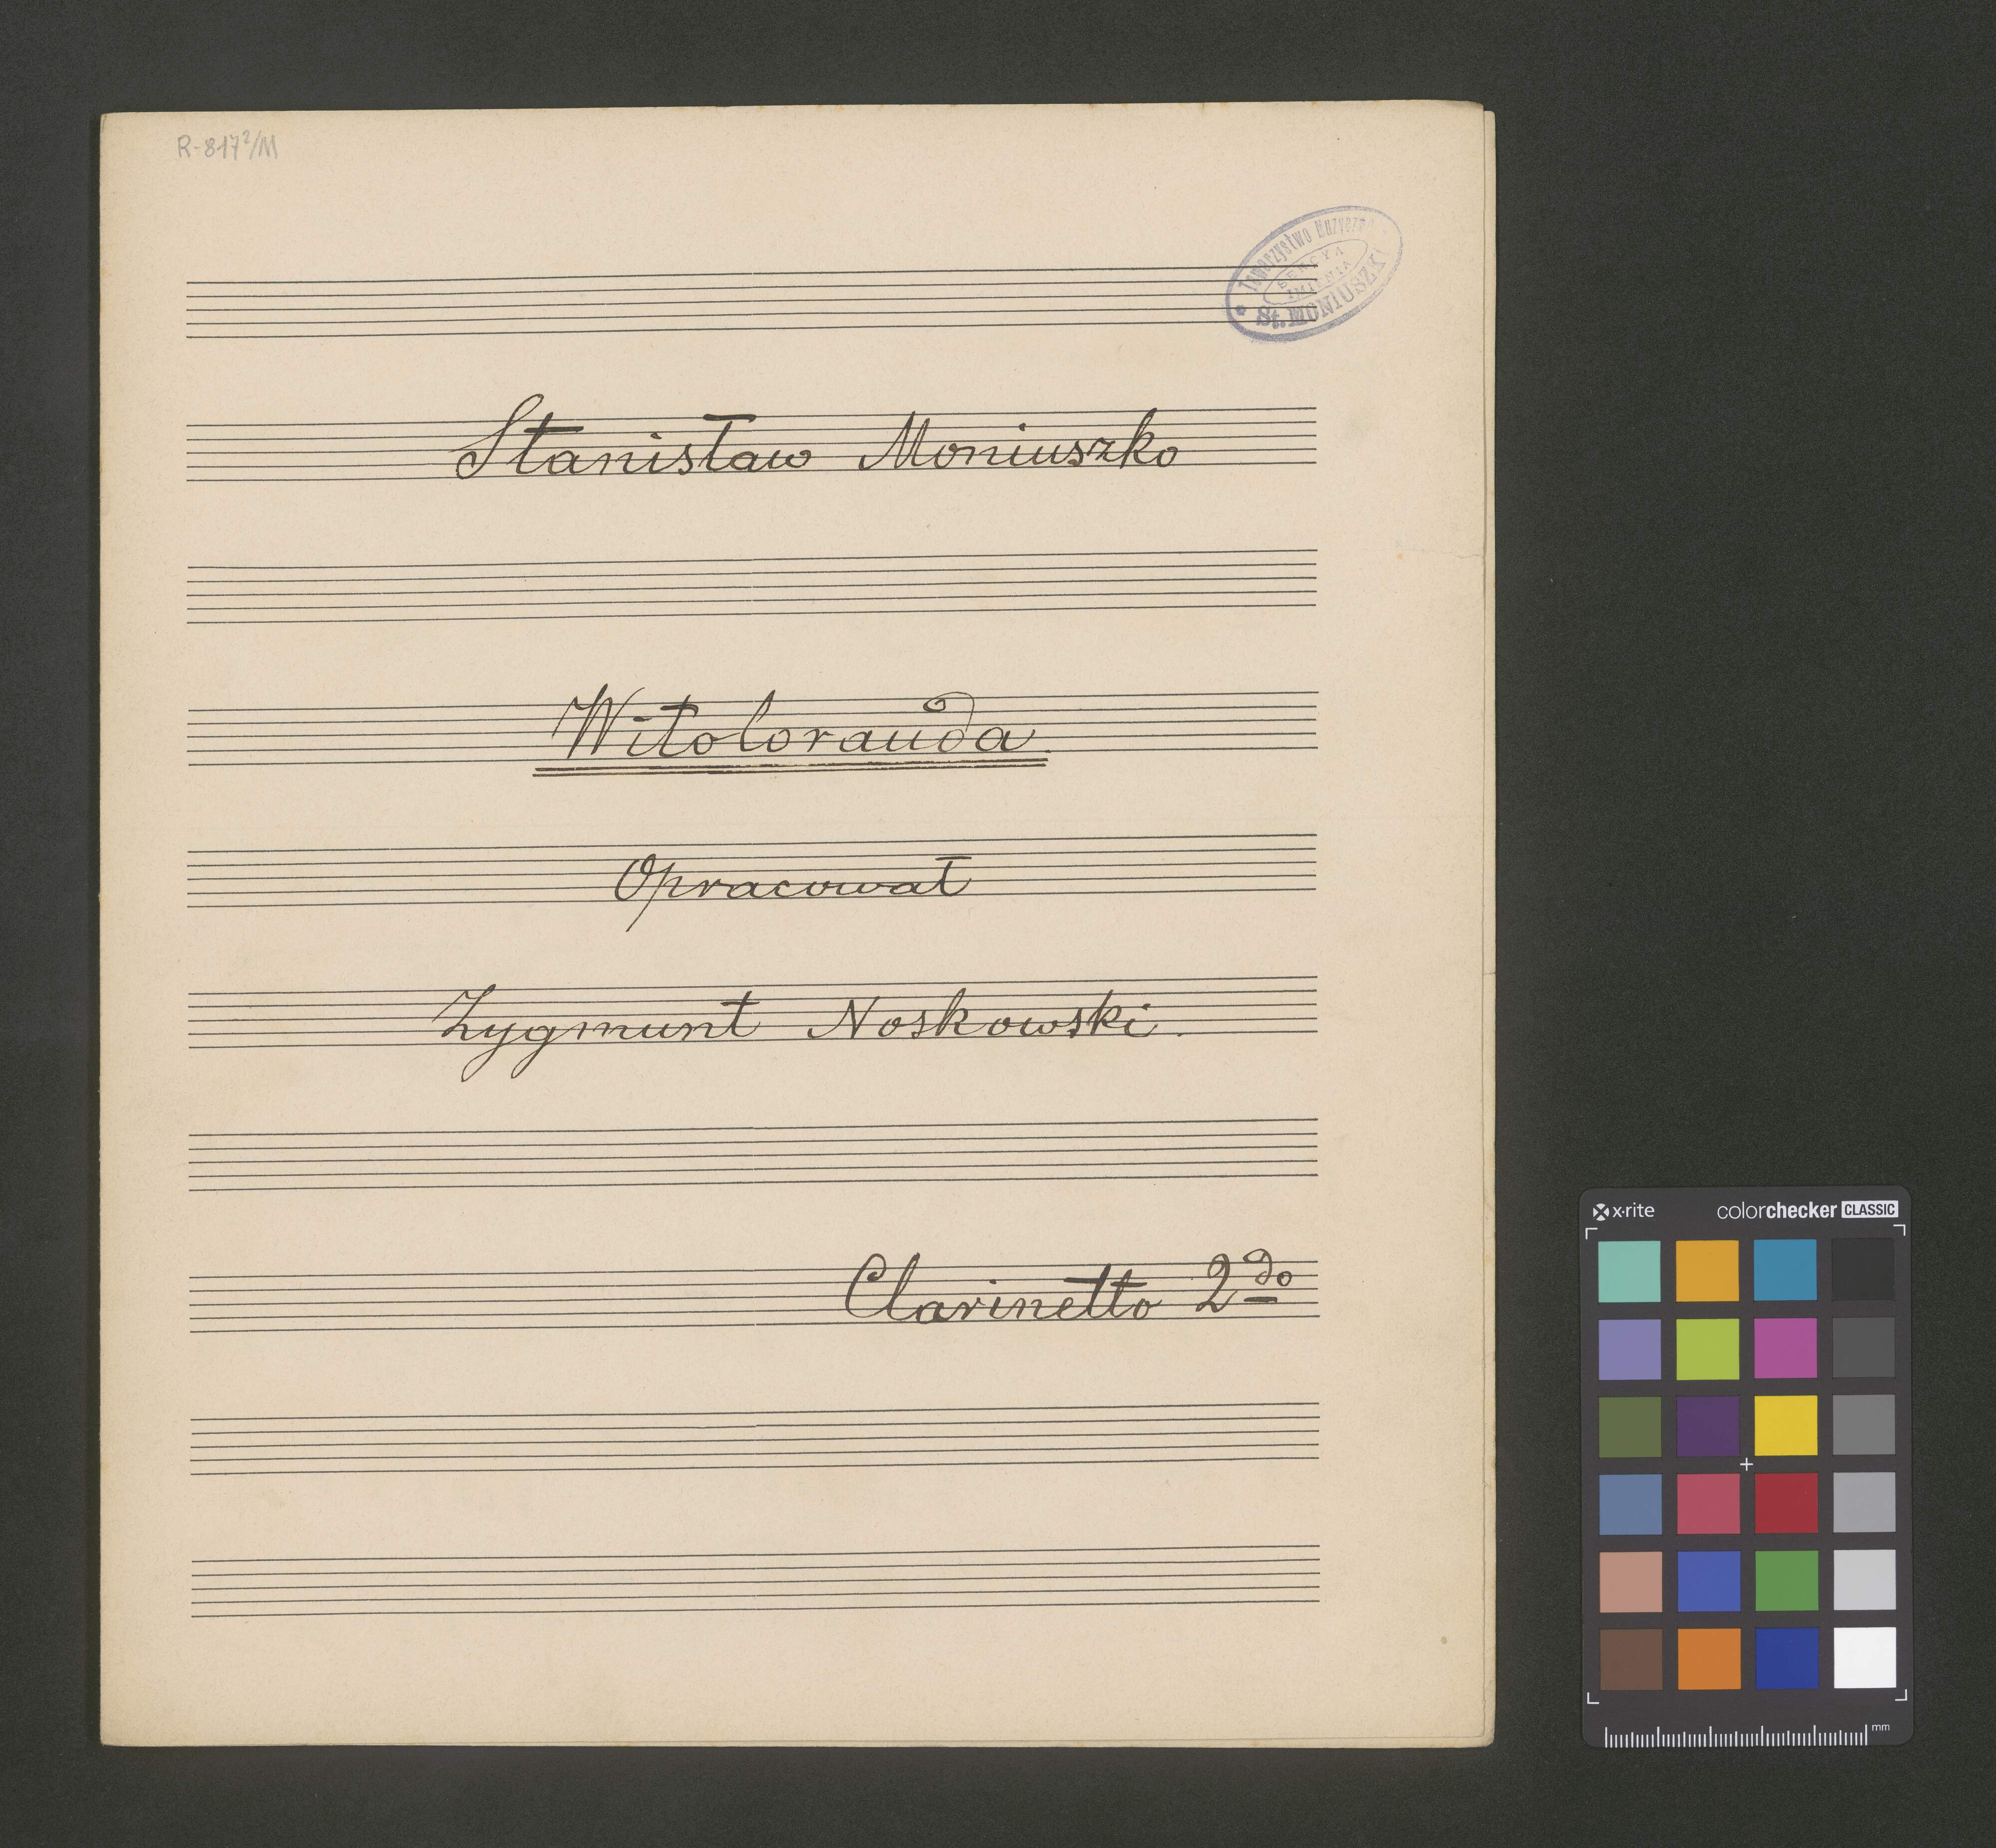 R-817²/M
Towarzystwo Muzyczne
SEKCYA
IMIENIA
St. MONIUSZKI
Stanisław Moniuszko
Witolorauda.
Opracował
Zygmunt Noskowski.
Clarinetto 2do
x-rite colorchecker CLASSIC
mm